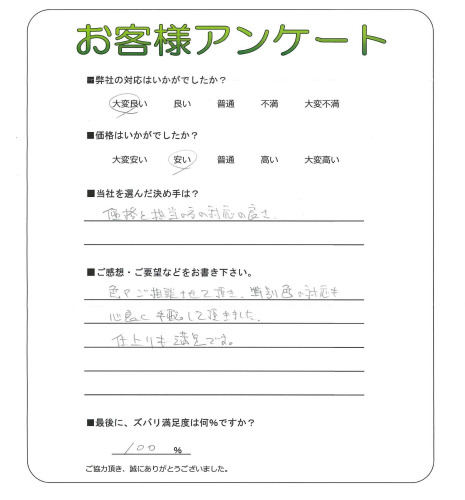 お客様アンケート
■弊社の対応はいかがでしたか？
大変良い 良い 普通 不満 大変不満
■価格はいかがでしたか？
大変安い 安い 普通 高い 大変高い
■当社を選んだ決め手は？
価格と担当の方の対応の良さ.
■ご感想・ご要望などをお書き下さい。
色々ご相談させて頂き、特別色の対応も
心良く手配して頂きました.
仕上りも満足です。
■最後に、ズバリ満足度は何％ですか？
100 %
ご協力頂き、誠にありがとうございました。